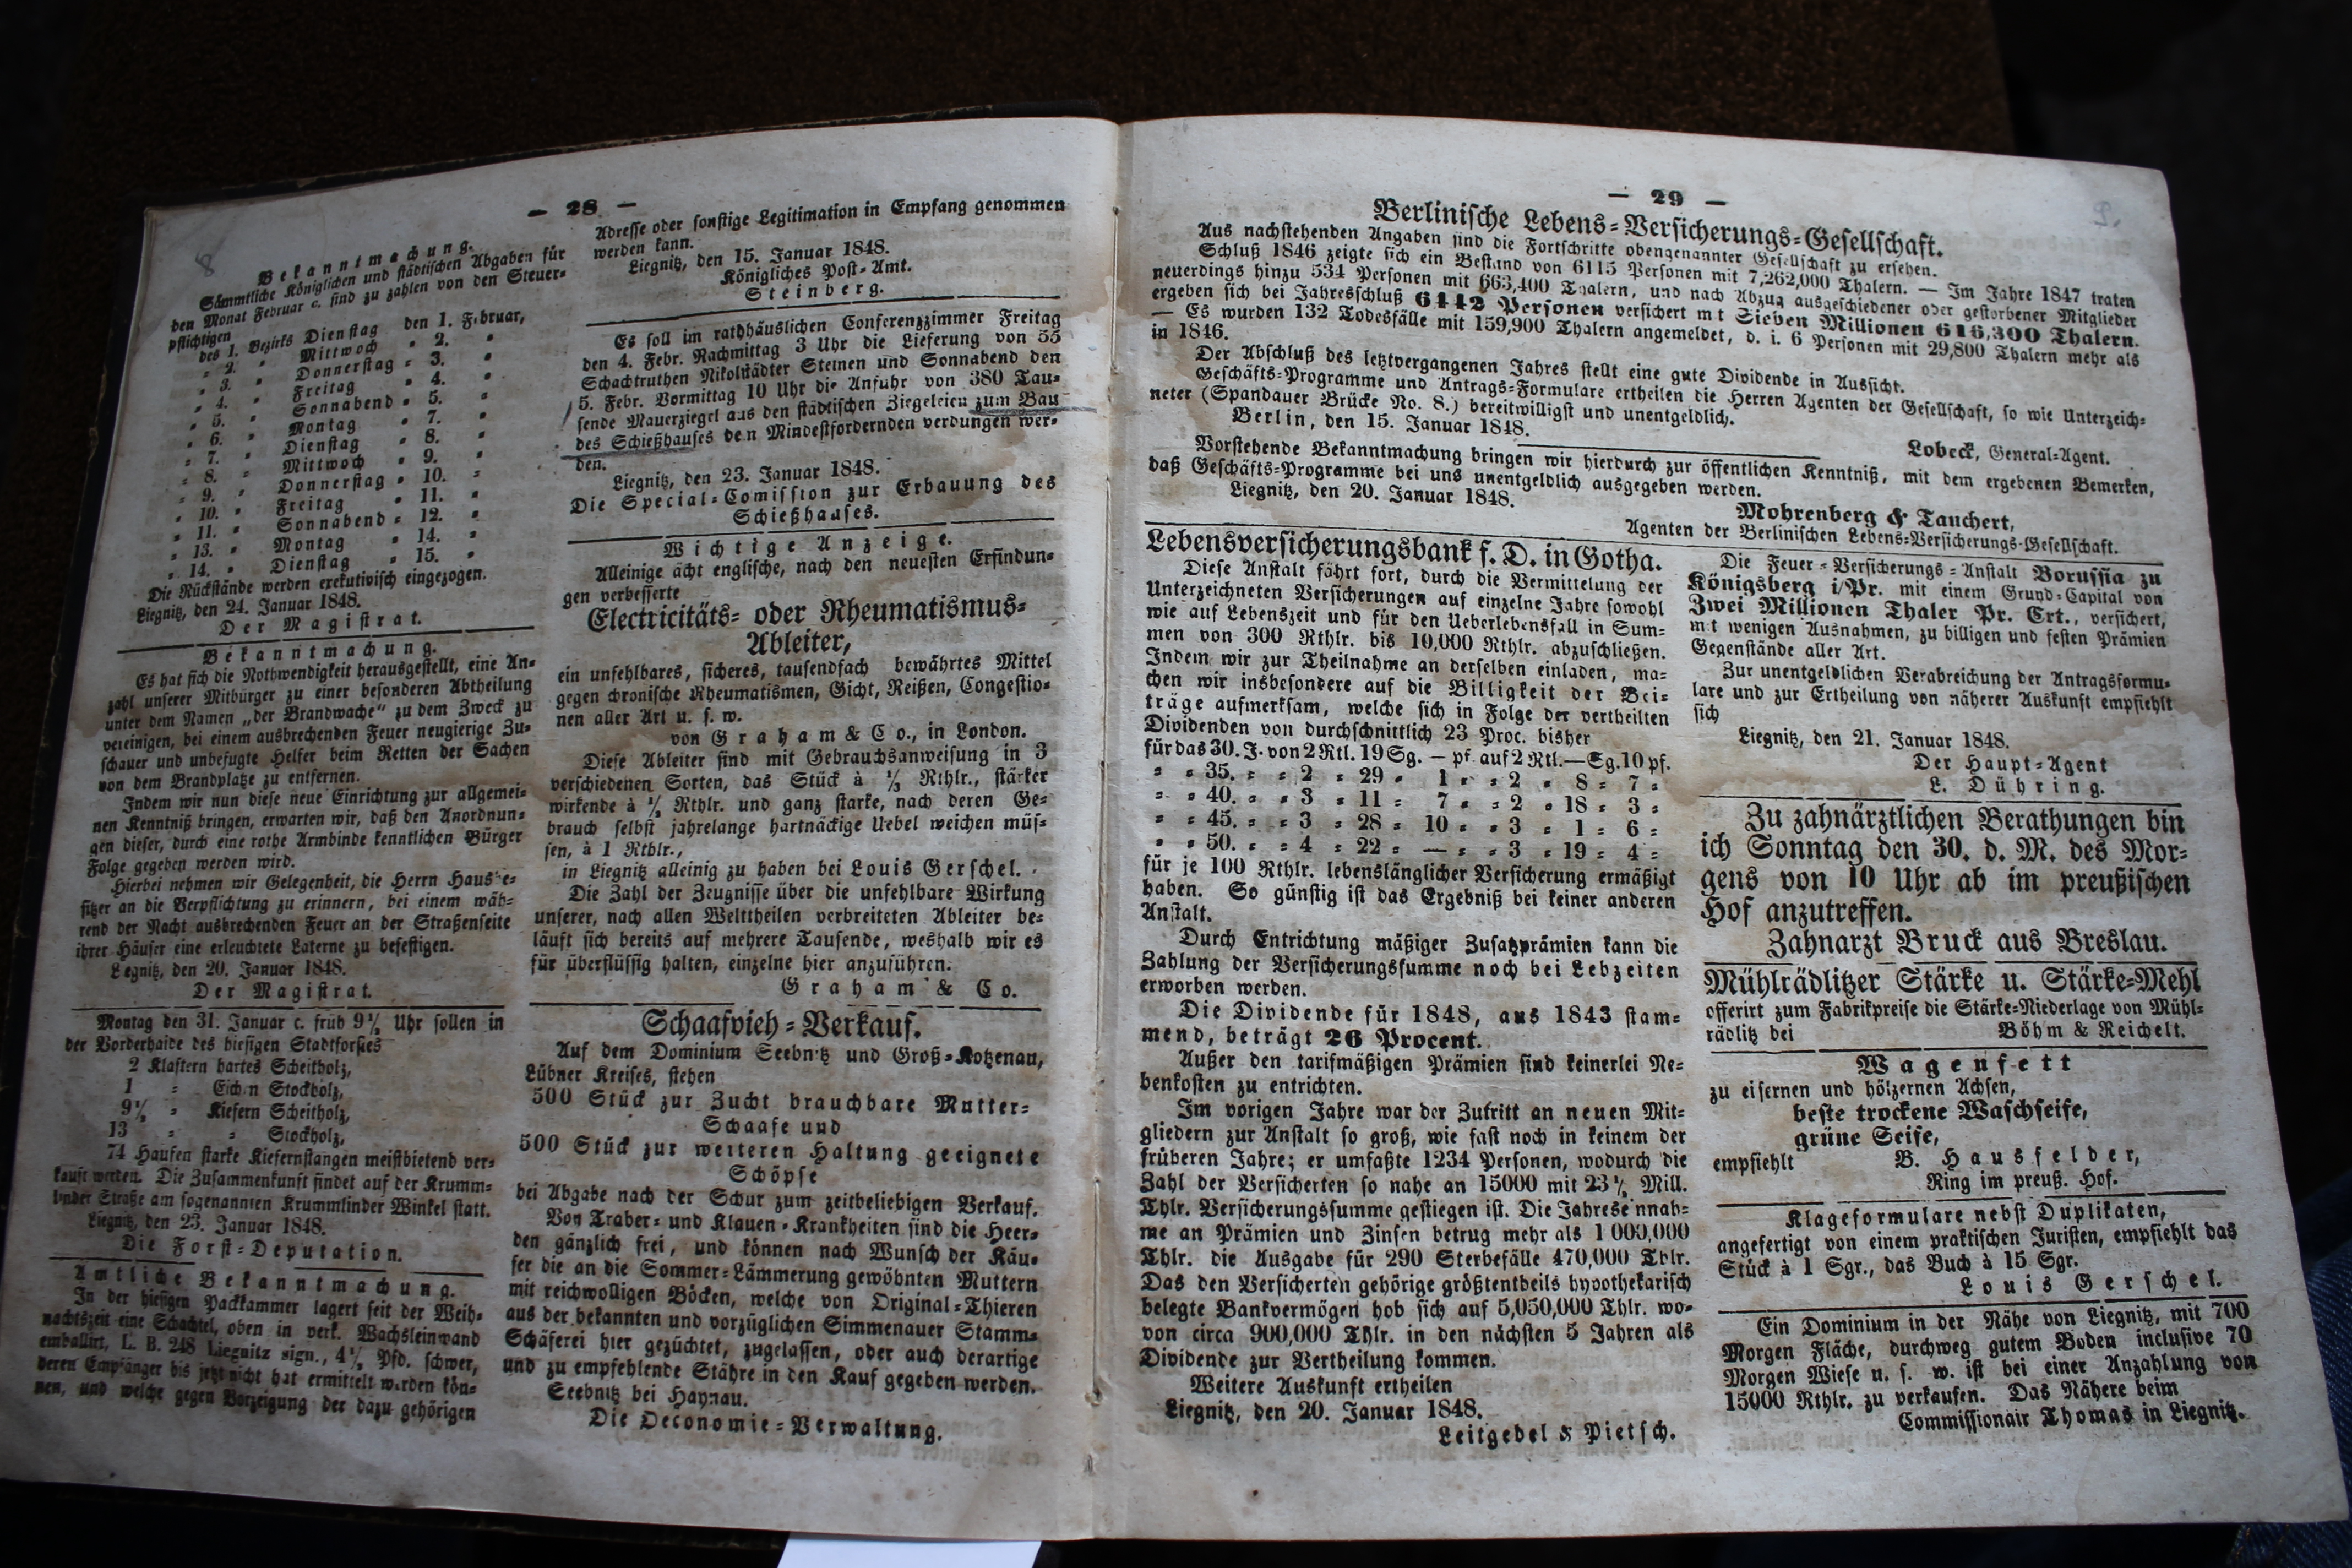 — 28 —
8
Bekanntmachung.
Sämmtliche Königlichen und städtischen Abgaben für
den Monat Februar c. sind zu zahlen von den Steuer-
pflichtigen
des 1. Bezirks Dienstag den 1. Februar,
„ 2. „ Mittwoch „ 2. „
„ 3. „ Donnerstag „ 3. „
„ 4. „ Freitag „ 4. „
„ 5. „ Sonnabend „ 5. „
„ 6. „ Montag „ 7. „
„ 7. „ Dienstag „ 8. „
„ 8. „ Mittwoch „ 9. „
„ 9. „ Donnerstag „ 10. „
„ 10. „ Freitag „ 11. „
„ 11. „ Sonnabend „ 12. „
„ 13. „ Montag „ 14. „
„ 14. „ Dienstag „ 15. „
Die Rückstände werden exekutivisch eingezogen.
Liegnitz, den 24. Januar 1848.
Der Magistrat.
Bekanntmachung.
Es hat sich die Nothwendigkeit herausgestellt, eine An-
zahl unserer Mitbürger zu einer besonderen Abtheilung
unter dem Namen „der Brandwache“ zu dem Zweck zu
vereinigen, bei einem ausbrechenden Feuer neugierige Zu-
schauer und unbefugte Helfer beim Retten der Sachen
von dem Brandplatze zu entfernen.
Indem wir nun diese neue Einrichtung zur allgemei-
nen Kenntniß bringen, erwarten wir, daß den Anordnun-
gen dieser, durch eine rothe Armbinde kenntlichen Bürger
Folge gegeben werden wird.
Hierbei nehmen wir Gelegenheit, die Herrn Hausbe-
sitzer an die Verpflichtung zu erinnern, bei einem wäh-
rend der Nacht ausbrechenden Feuer an der Straßenseite
ihrer Häuser eine erleuchtete Laterne zu befestigen.
Liegnitz, den 20. Januar 1848.
Der Magistrat.
Montag den 31. Januar c. früh 9½ Uhr sollen in
der Vorderhaide des hiesigen Stadtforstes
2 Klaftern hartes Scheitholz,
1 „ Eichen Stockholz,
9½ „ Kiefern Scheitholz,
13 „ „ Stockholz,
74 Haufen starke Kiefernstangen meistbietend ver-
kauft werden. Die Zusammenkunft findet auf der Krumm-
linder Straße am sogenannten Krummlinder Winkel statt.
Liegnitz, den 23. Januar 1848.
Die Forst-Deputation.
Amtliche Bekanntmachung.
In der hiesigen Packkammer lagert seit der Weih-
nachtszeit eine Schachtel, oben in verk. Wachsleinwand
emballirt, L. B. 248 Liegnitz sign., 4½ Pfd. schwer,
deren Empfänger bis jetzt nicht hat ermittelt werden kön-
nen, und welche gegen Vorzeigung der dazu gehörigen
Adresse oder sonstige Legitimation in Empfang genommen
werden kann.
Liegnitz, den 15. Januar 1848.
Königliches Post-Amt.
Steinberg.
Es soll im rathhäuslichen Conferenzzimmer Freitag
den 4. Febr. Nachmittag 3 Uhr die Lieferung von 55
Schachtruthen Nikolstädter Steinen und Sonnabend den
5. Febr. Vormittag 10 Uhr die Anfuhr von 380 Tau-
sende Mauerziegel aus den städtischen Ziegeleien zum Bau
des Schießhauses den Mindestfordernden verdungen wer-
den.
Liegnitz, den 23. Januar 1848.
Die Special-Comission zur Erbauung des
Schießhauses.
Wichtige Anzeige.
Alleinige ächt englische, nach den neuesten Erfindun-
gen verbesserte
Electricitäts- oder Rheumatismus-
Ableiter,
ein unfehlbares, sicheres, tausendfach bewährtes Mittel
gegen chronische Rheumatismen, Gicht, Reißen, Congestio-
nen aller Art u. s. w.
von Graham & Co., in London.
Diese Ableiter sind mit Gebrauchsanweisung in 3
verschiedenen Sorten, das Stück à ⅓ Rthlr., stärker
wirkende à ½ Rthlr. und ganz starke, nach deren Ge-
brauch selbst jahrelange hartnäckige Uebel weichen müs-
sen, à 1 Rthlr.,
in Liegnitz alleinig zu haben bei Louis Gerschel.
Die Zahl der Zeugnisse über die unfehlbare Wirkung
unserer, nach allen Welttheilen verbreiteten Ableiter be-
läuft sich bereits auf mehrere Tausende, weshalb wir es
für überflüssig halten, einzelne hier anzuführen.
Graham & Co.
Schaafvieh-Verkauf.
Auf dem Dominium Seebnitz und Groß-Kotzenau,
Lübner Kreises, stehen
500 Stück zur Zucht brauchbare Mutter-
Schaafe und
500 Stück zur weiteren Haltung geeignete
Schöpse
bei Abgabe nach der Schur zum zeitbeliebigen Verkauf.
Von Traber- und Klauen-Krankheiten sind die Heer-
den gänzlich frei, und können nach Wunsch der Käu-
fer die an die Sommer-Lämmerung gewöhnten Muttern
mit reichwolligen Böcken, welche von Original-Thieren
aus der bekannten und vorzüglichen Simmenauer Stamm-
Schäferei hier gezüchtet, zugelassen, oder auch derartige
und zu empfehlende Stähre in den Kauf gegeben werden.
Seebnitz bei Haynau.
Die Oeconomie-Verwaltung.
— 29 —
Berlinische Lebens-Versicherungs-Gesellschaft.
Aus nachstehenden Angaben sind die Fortschritte obengenannter Gesellschaft zu ersehen.
Schluß 1846 zeigte sich ein Bestand von 6115 Personen mit 7,262,000 Thalern. — Im Jahre 1847 traten
neuerdings hinzu 534 Personen mit 663,400 Thalern, und nach Abzug ausgeschiedener oder gestorbener Mitglieder
ergeben sich bei Jahresschluß 6442 Personen versichert mit Sieben Millionen 616,300 Thalern.
— Es wurden 132 Todesfälle mit 159,900 Thalern angemeldet, d. i. 6 Personen mit 29,800 Thalern mehr als
in 1846.
Der Abschluß des letztvergangenen Jahres stellt eine gute Dividende in Aussicht.
Geschäfts-Programme und Antrags-Formulare ertheilen die Herren Agenten der Gesellschaft, so wie Unterzeich-
neter (Spandauer Brücke No. 8.) bereitwilligst und unentgeldlich.
Berlin, den 15. Januar 1848.
Lobeck, General-Agent.
Vorstehende Bekanntmachung bringen wir hierdurch zur öffentlichen Kenntniß, mit dem ergebenen Bemerken,
daß Geschäfts-Programme bei uns unentgeldlich ausgegeben werden.
Liegnitz, den 20. Januar 1848.
Mohrenberg & Tauchert,
Agenten der Berlinischen Lebens-Versicherungs-Gesellschaft.
Lebensversicherungsbank f. D. in Gotha.
Diese Anstalt fährt fort, durch die Vermittelung der
Unterzeichneten Versicherungen auf einzelne Jahre sowohl
wie auf Lebenszeit und für den Ueberlebensfall in Sum-
men von 300 Rthlr. bis 10,000 Rthlr. abzuschließen.
Indem wir zur Theilnahme an derselben einladen, ma-
chen wir insbesondere auf die Billigkeit der Bei-
träge aufmerksam, welche sich in Folge der vertheilten
Dividenden von durchschnittlich 23 Proc. bisher
für das 30. J. von 2 Rtl. 19 Sg. — pf. auf 2 Rtl. — Sg. 10 pf.
„ „ 35. „ „ 2 „ 29 „ 1 „ „ 2 „ 8 „ 7 „
„ „ 40. „ „ 3 „ 11 „ 7 „ „ 2 „ 18 „ 3 „
„ „ 45. „ „ 3 „ 28 „ 10 „ „ 3 „ 1 „ 6 „
„ „ 50. „ „ 4 „ 22 „ — „ „ 3 „ 19 „ 4 „
für je 100 Rthlr. lebenslänglicher Versicherung ermäßigt
haben. So günstig ist das Ergebniß bei keiner anderen
Anstalt.
Durch Entrichtung mäßiger Zusatzprämien kann die
Zahlung der Versicherungssumme noch bei Lebzeiten
erworben werden.
Die Dividende für 1848, aus 1843 stam-
mend, beträgt 26 Procent.
Außer den tarifmäßigen Prämien sind keinerlei Ne-
benkosten zu entrichten.
Im vorigen Jahre war der Zutritt an neuen Mit-
gliedern zur Anstalt so groß, wie fast noch in keinem der
früheren Jahre; er umfaßte 1234 Personen, wodurch die
Zahl der Versicherten so nahe an 15000 mit 23½ Mill.
Thlr. Versicherungssumme gestiegen ist. Die Jahreseinnah-
me an Prämien und Zinsen betrug mehr als 1 000,000
Thlr. die Ausgabe für 290 Sterbefälle 470,000 Thlr.
Das den Versicherten gehörige größtentheils hypothekarisch
belegte Bankvermögen hob sich auf 5,050,000 Thlr. wo-
von circa 900,000 Thlr. in den nächsten 5 Jahren als
Dividende zur Vertheilung kommen.
Weitere Auskunft ertheilen
Liegnitz, den 20. Januar 1848.
Leitgebel & Pietsch.
Die Feuer-Versicherungs-Anstalt Borussia zu
Königsberg i/Pr. mit einem Grund-Capital von
Zwei Millionen Thaler Pr. Crt., versichert,
mit wenigen Ausnahmen, zu billigen und festen Prämien
Gegenstände aller Art.
Zur unentgeldlichen Verabreichung der Antragsformu-
lare und zur Ertheilung von näherer Auskunft empfiehlt
sich
Liegnitz, den 21. Januar 1848.
Der Haupt-Agent
L. Dühring.
Zu zahnärztlichen Berathungen bin
ich Sonntag den 30. d. M. des Mor-
gens von 10 Uhr ab im preußischen
Hof anzutreffen.
Zahnarzt Bruck aus Breslau.
Mühlrädlitzer Stärke u. Stärke-Mehl
offerirt zum Fabrikpreise die Stärke-Niederlage von Mühl-
rädlitz bei Böhm & Reichelt.
Wagenfett
zu eisernen und hölzernen Achsen,
beste trockene Waschseife,
grüne Seife,
empfiehlt B. Hausfelder,
Ring im preuß. Hof.
Klageformulare nebst Duplikaten,
angefertigt von einem praktischen Juristen, empfiehlt das
Stück à 1 Sgr., das Buch à 15 Sgr.
Louis Gerschel.
Ein Dominium in der Nähe von Liegnitz, mit 700
Morgen Fläche, durchweg gutem Boden inclusive 70
Morgen Wiese u. s. w. ist bei einer Anzahlung von
15000 Rthlr. zu verkaufen. Das Nähere beim
Commissionair Thomas in Liegnitz.